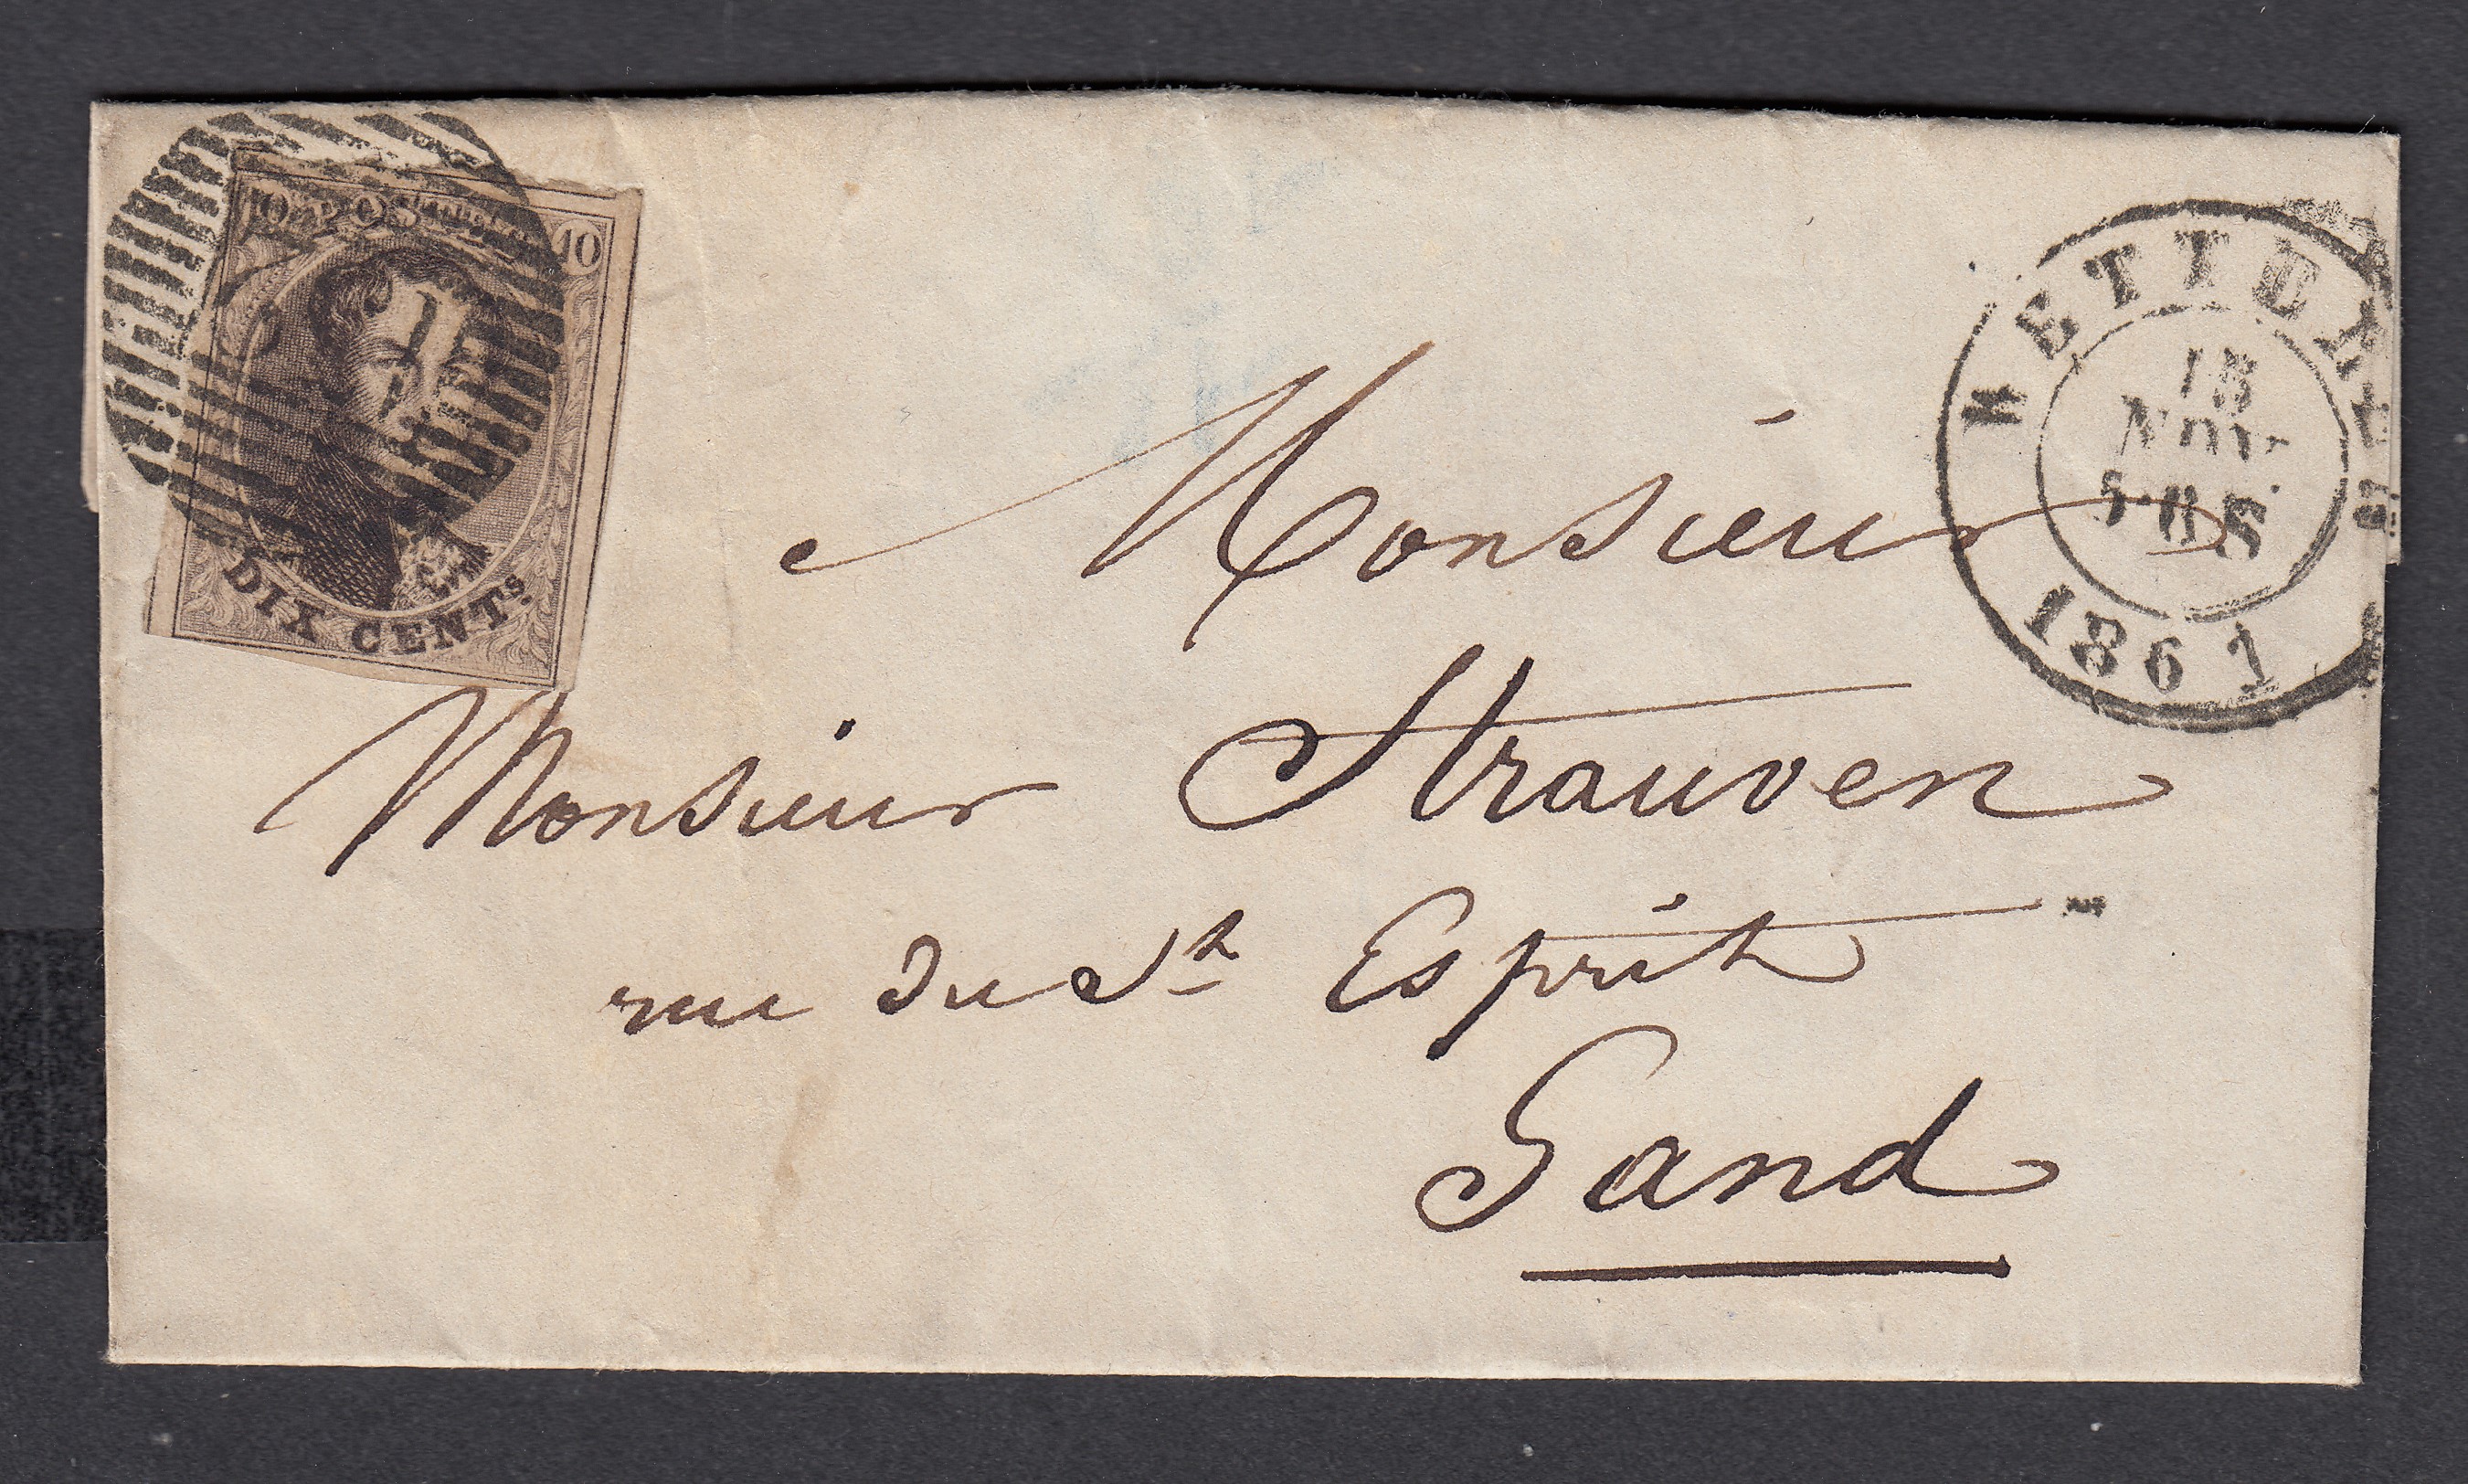 10 POSTES 10
DIX CENTS.
WETTEREN
15
NOV.
5-6 S
1861
Monsieur
Monsieur Strauven
rue du St Esprit
Gand